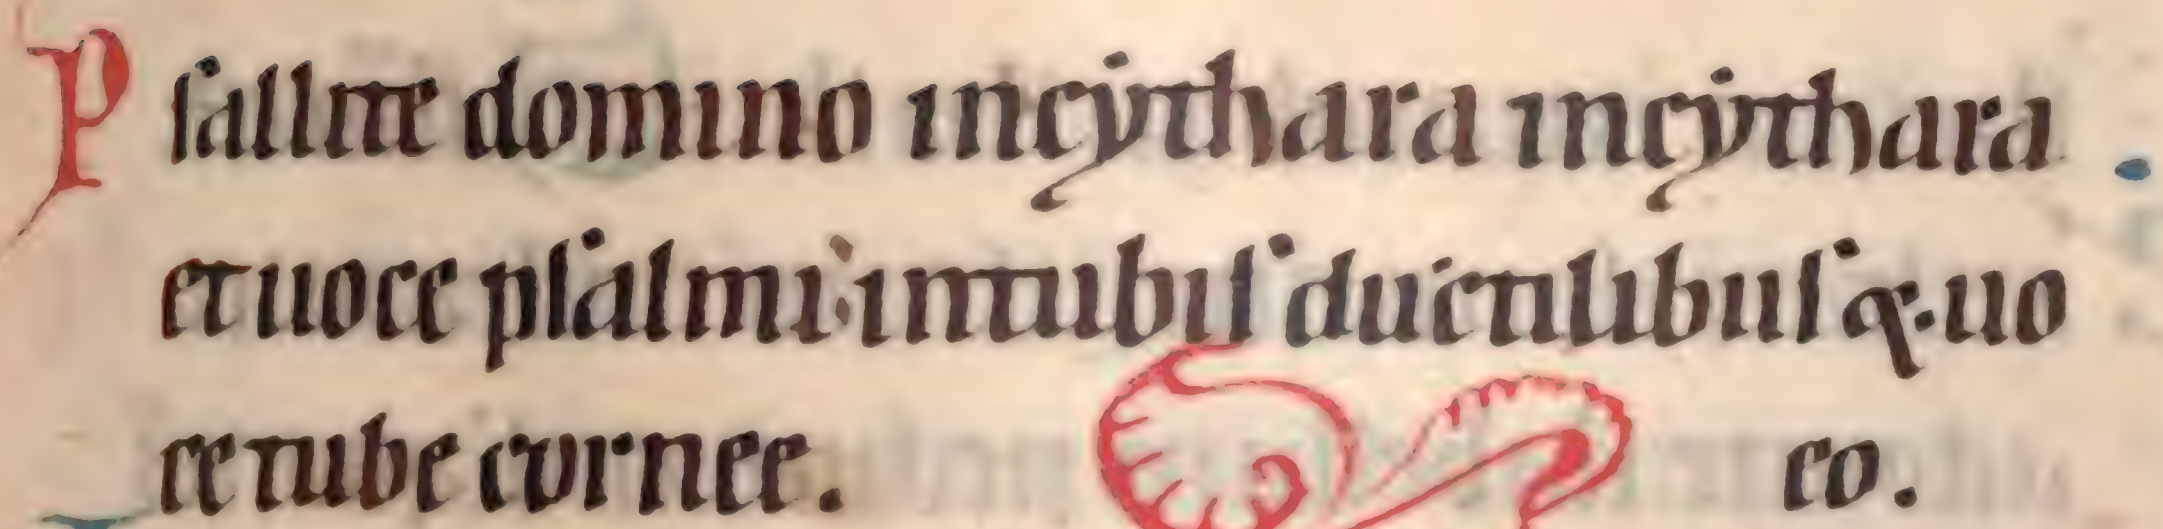 Psallite domino incythara incythara
et uoce psalmi: intubis ductilibus q; uo
ce tube curnee.
eo.